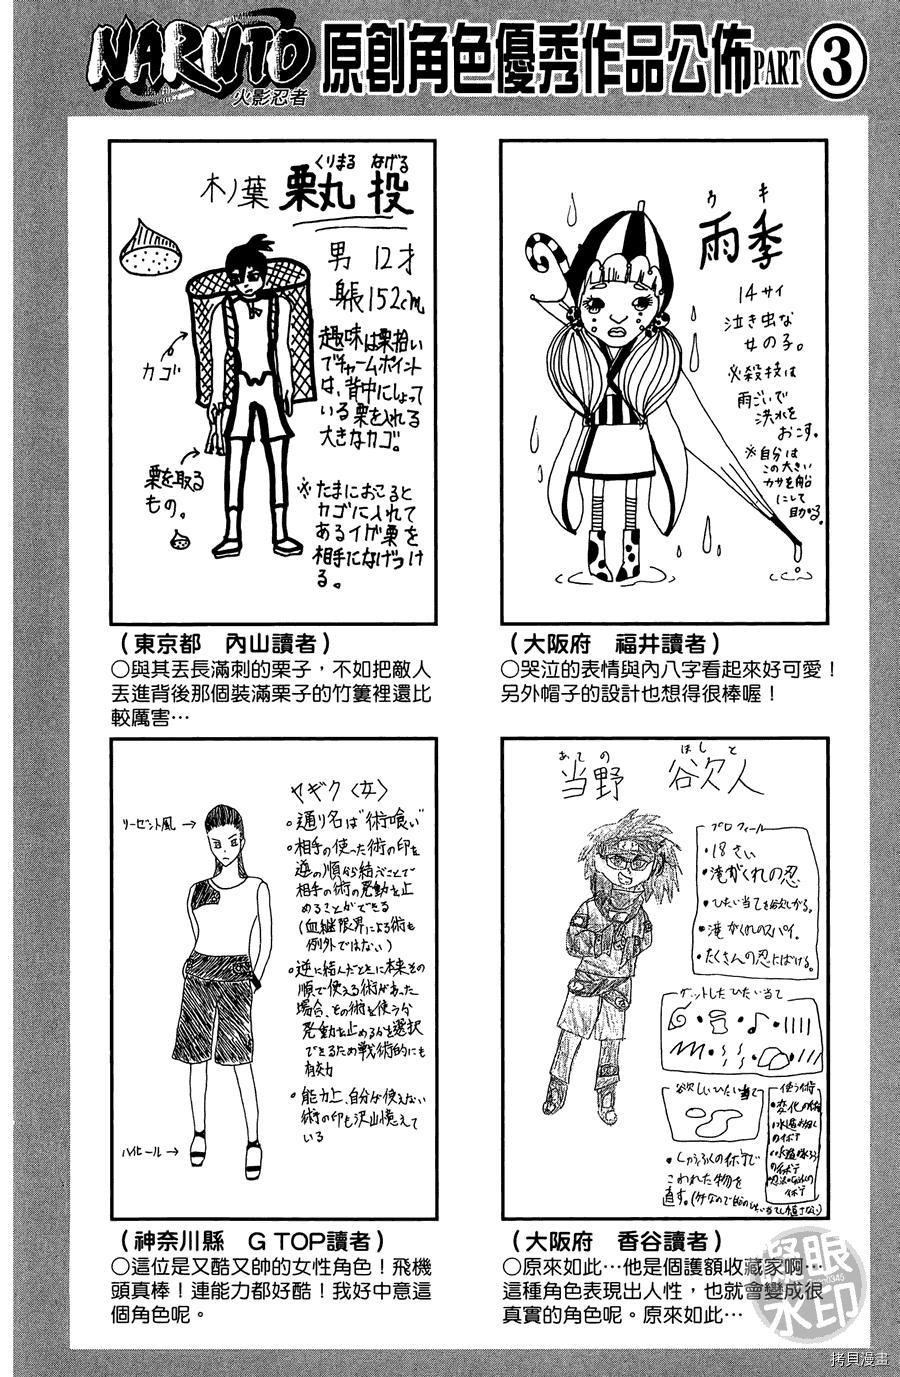 NARUTO
火影忍者
原創角色優秀作品公佈PART③
くりまる なげる
木ノ葉 栗丸 投
男 12才
身長152cm
趣味は栗拾い
でチャームポイント
は、背中にしょって
いる栗を入れる
大きなカゴ。
カゴ
栗を取る
もの。
※たまにおこると
カゴに入れて
あるイガ栗を
相手になげつけ
る。
（東京都　內山讀者）
○與其丟長滿刺的栗子，不如把敵人
丟進背後那個裝滿栗子的竹簍裡還比
較厲害…
ウキ
雨季
14サイ
泣き虫な
女の子。
必殺技は
雨ごいで
洪水を
おこす。
※自分は
この大きい
カサを船
にして
助かる。
（大阪府　福井讀者）
○哭泣的表情與內八字看起來好可愛！
另外帽子的設計也想得很棒喔！
ヤギク〈女〉
リーゼント風→
。通り名は“術喰い”
。相手の使った術の印を
逆の順から結ぶことで
相手の術の発動を止
めることができる
(血継限界による術も
例外ではない)
。逆に結んだときに本来その
順で使える術があった
場合、その術を使う分
発動を止めるかを選択
できるため戦術的にも
有効
。能力上、自分が使えない
術の印も沢山憶えて
いる
ハイヒール→
（神奈川縣　G TOP讀者）
○這位是又酷又帥的女性角色！飛機
頭真棒！連能力都好酷！我好中意這
個角色呢。
あての ほしと
当野 欲人
プロフィール
・18さい
・滝がくれの忍
・ひたい当てを欲しがる。
・滝がくれのスパイ。
・たくさんの忍にばける。
ゲットしたひたい当て
欲しいひたい当て
使う術
・変化の術
・しょうふくの術で
こわれた物を
直す。
（大阪府　香谷讀者）
○原來如此…他是個護額收藏家啊…
這種角色表現出人性，也就會變成很
真實的角色呢。原來如此…
凝眼
水印
拷貝漫畫